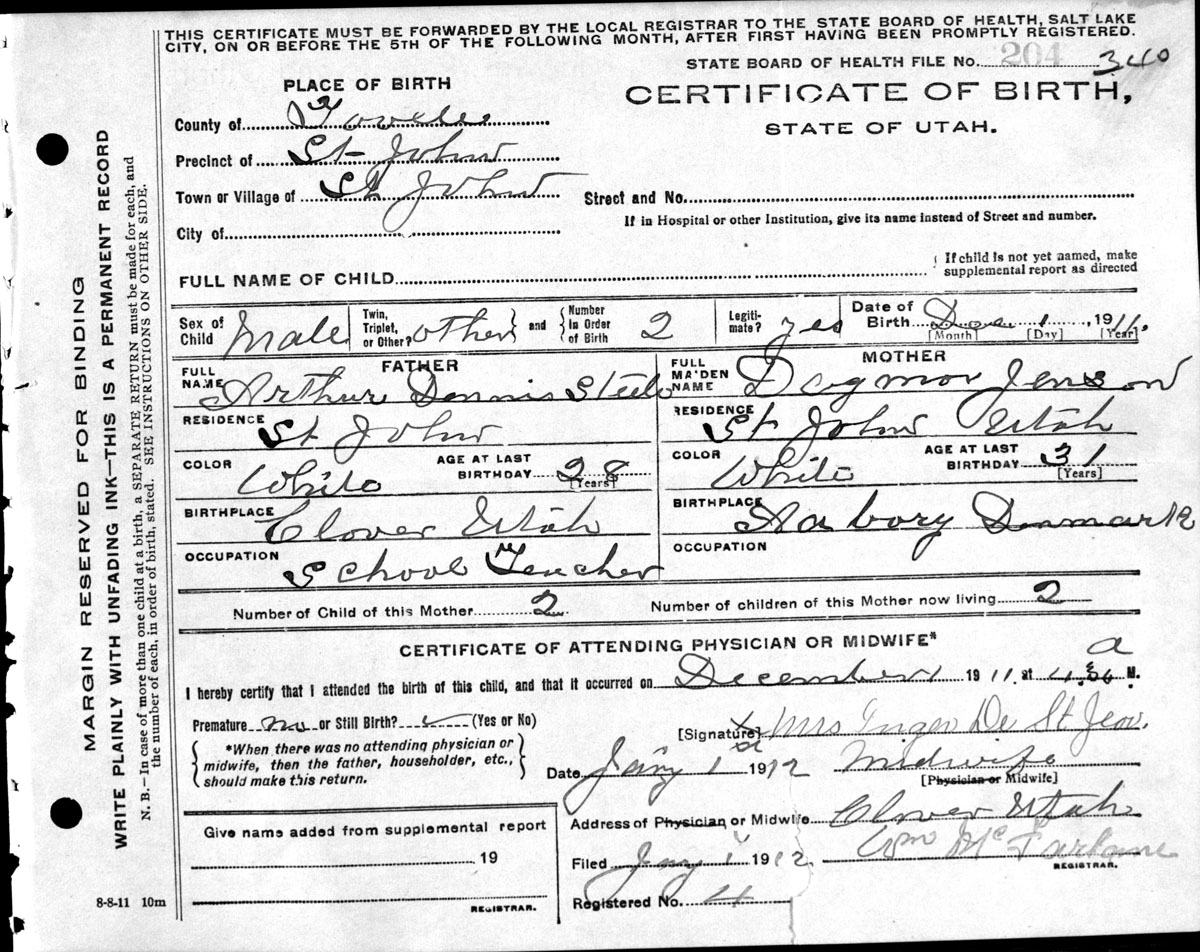 THIS CERTIFICATE MUST BE FORWARDED BY THE LOCAL REGISTRAR TO THE STATE BOARD OF HEALTH, SALT LAKE
CITY, ON OR BEFORE THE 5TH OF THE FOLLOWING MONTH, AFTER FIRST HAVING BEEN PROMPTLY REGISTERED.
STATE BOARD OF HEALTH FILE NO. 204 340
PLACE OF BIRTH
CERTIFICATE OF BIRTH,
STATE OF UTAH.
County of Tooele
Precinct of St John
Town or Village of St John
Street and No.
If in Hospital or other Institution, give its name instead of Street and number.
City of
FULL NAME OF CHILD
If child is not yet named, make
supplemental report as directed
Sex of Child Male
Twin, Triplet, or Other? other
and
Number In Order of Birth 2
Legiti-mate? yes
Date of Birth Dec 1, 1911.
[Month] [Day] [Year]
FATHER
FULL NAME Arthur Dennis Steele
RESIDENCE St John
COLOR White
AGE AT LAST BIRTHDAY 28
[Years]
BIRTHPLACE Clover Utah
OCCUPATION School Teacher
MOTHER
FULL MAIDEN NAME Dagmar Jenson
RESIDENCE St John Utah
COLOR White
AGE AT LAST BIRTHDAY 31
[Years]
BIRTHPLACE Denmark
OCCUPATION
Number of Child of this Mother 2
Number of children of this Mother now living 2
CERTIFICATE OF ATTENDING PHYSICIAN OR MIDWIFE*
I hereby certify that I attended the birth of this child, and that it occurred on December 1 1911. at a M.
Premature no or Still Birth? (Yes or No)
*When there was no attending physician or
midwife, then the father, householder, etc.,
should make this return.
[Signature] Mrs De St Jeor.
Date Jany 1 1912
Midwife
[Physician or Midwife]
Address of Physician or Midwife Clover Utah
Give name added from supplemental report
19
REGISTRAR.
Filed Jany 1 1912
Wm
REGISTRAR.
Registered No. 4
8-8-11 10m
MARGIN RESERVED FOR BINDING
WRITE PLAINLY WITH UNFADING INK—THIS IS A PERMANENT RECORD
N. B.—In case of more than one child at a birth, a SEPARATE RETURN must be made for each, and
the number of each, in order of birth, stated. SEE INSTRUCTIONS ON OTHER SIDE.